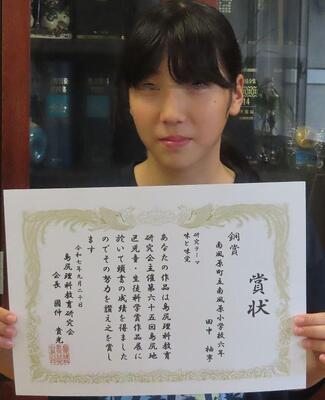 賞状
銅賞
南風原町立南風原小学校六年
田中 柚寧
研究テーマ
味と味覚
あなたの作品は島尻理科教育
研究会主催第六十五回島尻地
区児童・生徒科学賞作品展に
於いて頭書の成績を得ました
のでその努力を讃え之を賞し
ます
令和七年九月二十日
島尻理科教育研究会
会長 國仲 貴光